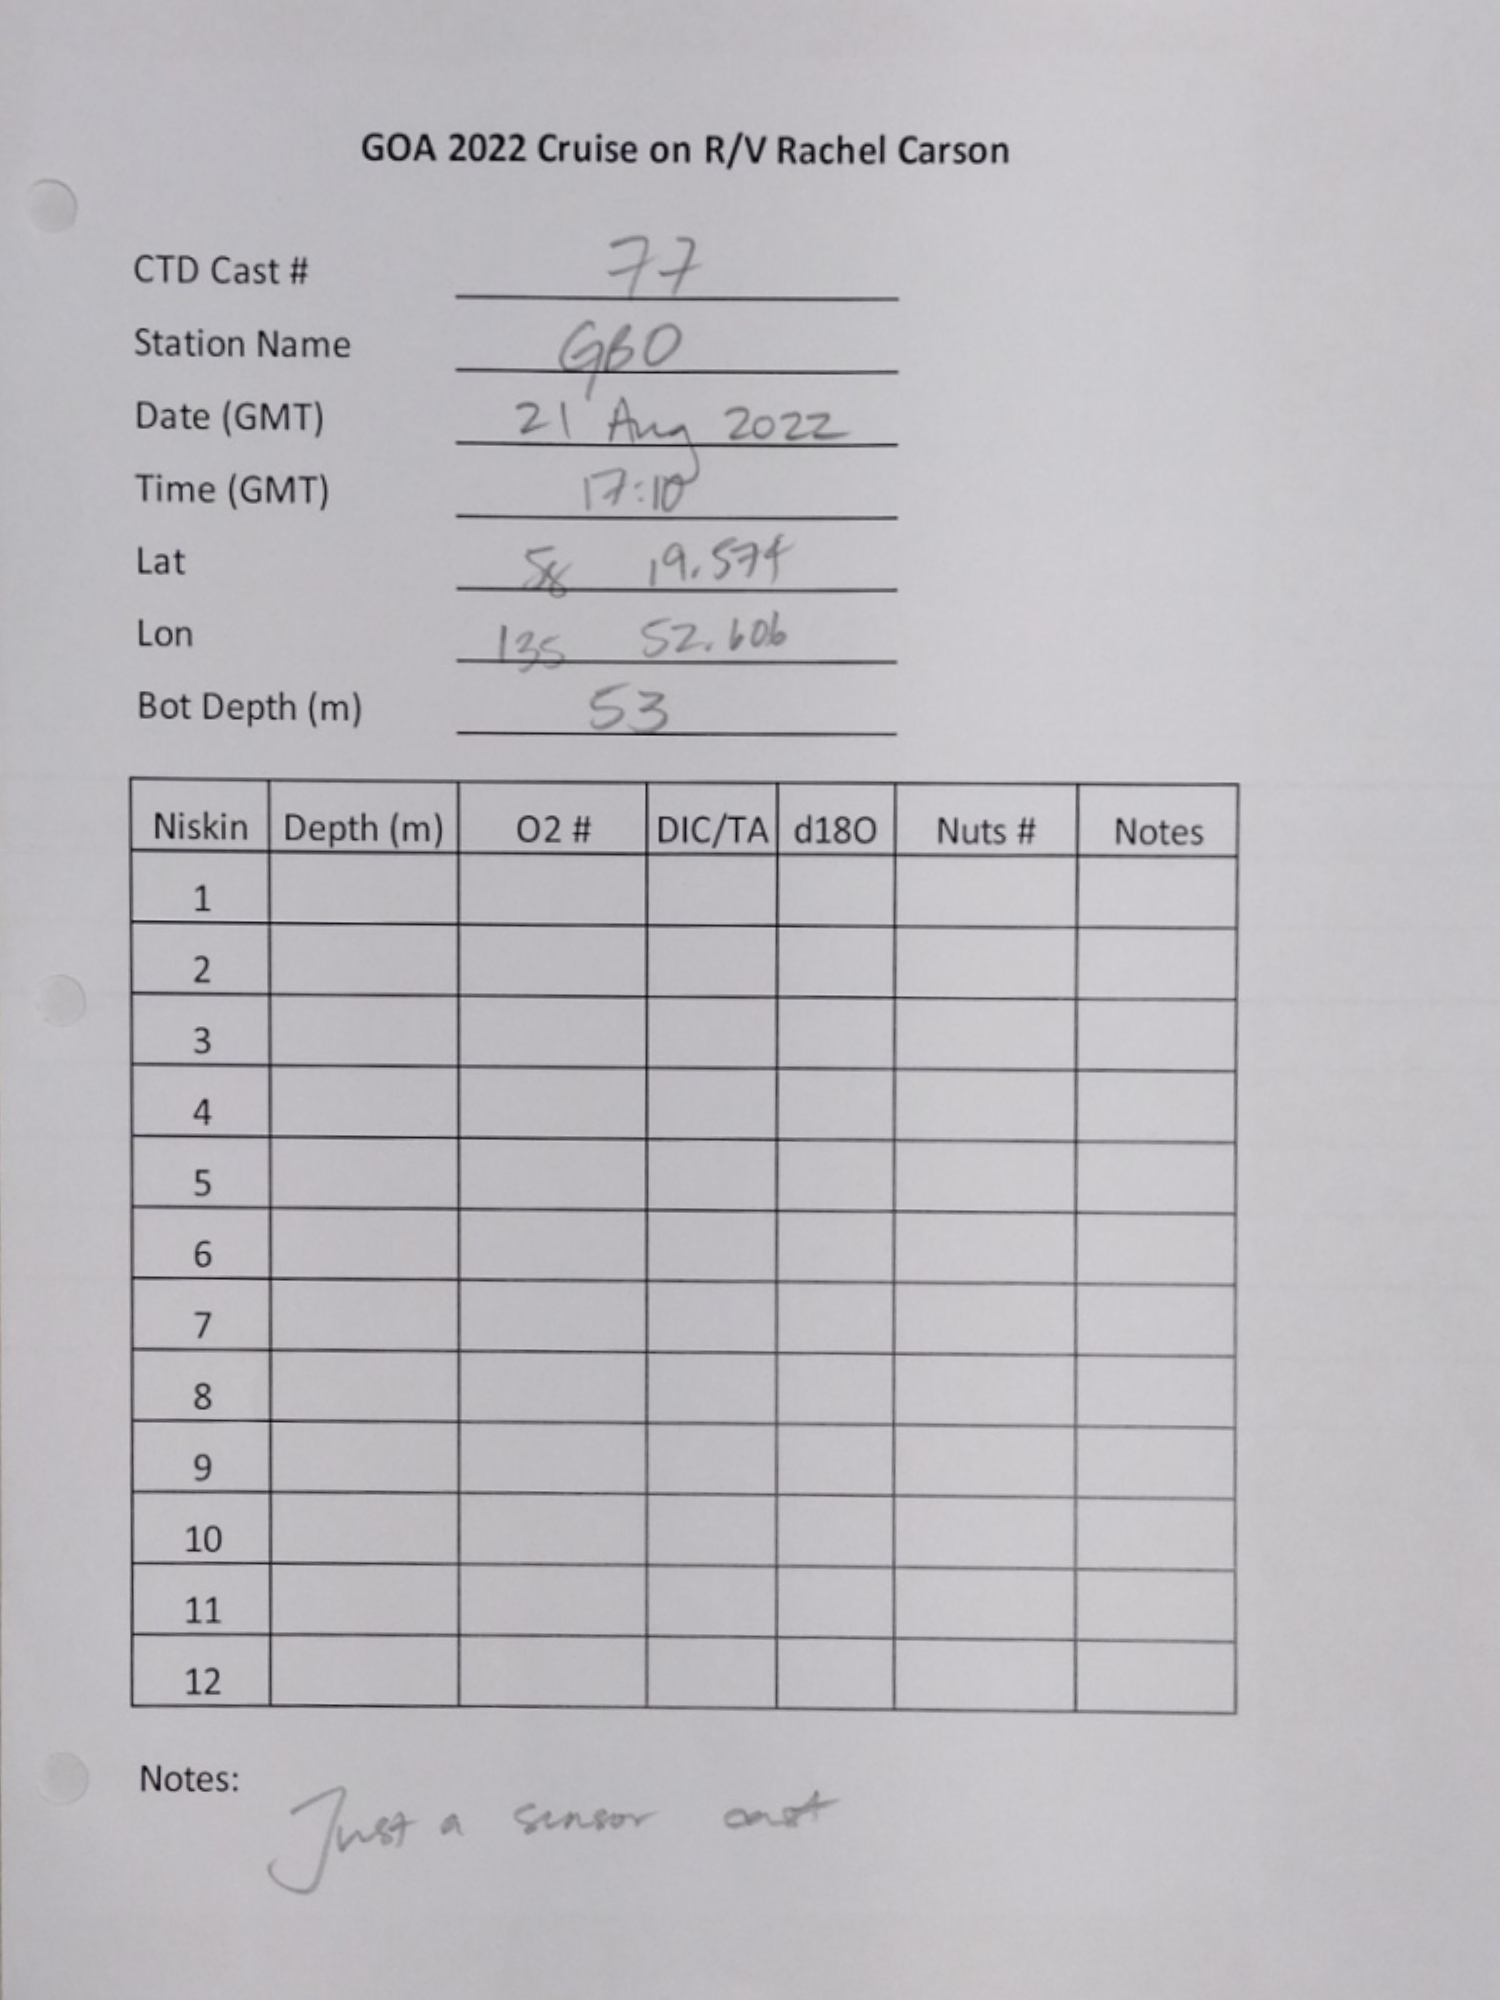 GOA 2022 Cruise on R/V Rachel Carson
CTD Cast # 77
Station Name GBO
Date (GMT) 21 Aug 2022
Time (GMT) 17:10
Lat 58 19.574
Lon 135 52.606
Bot Depth (m) 53
Niskin Depth (m) O2 # DIC/TA d18O Nuts # Notes
1
2
3
4
5
6
7
8
9
10
11
12
Notes:
Just a sensor cast